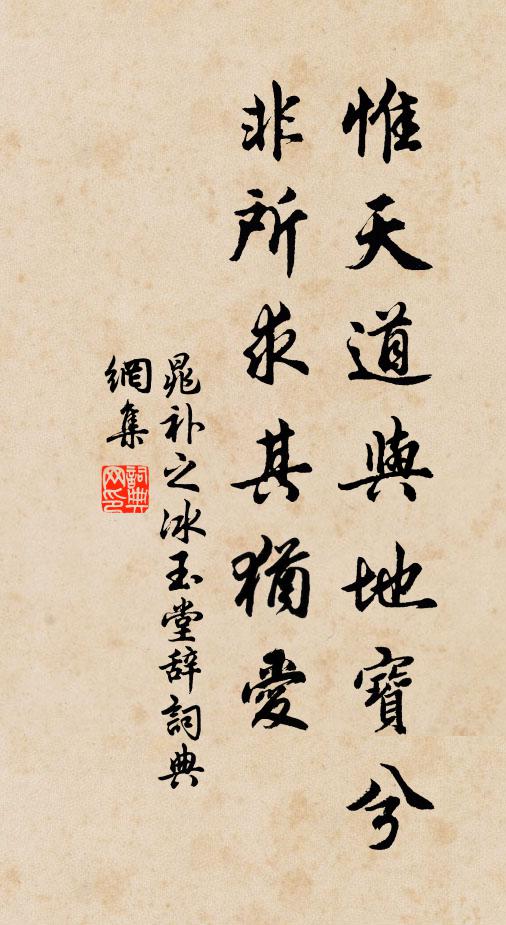 惟天道與地寶兮
非所求其猶愛
晁补之冰玉堂辞詞典
網集
詞典網印